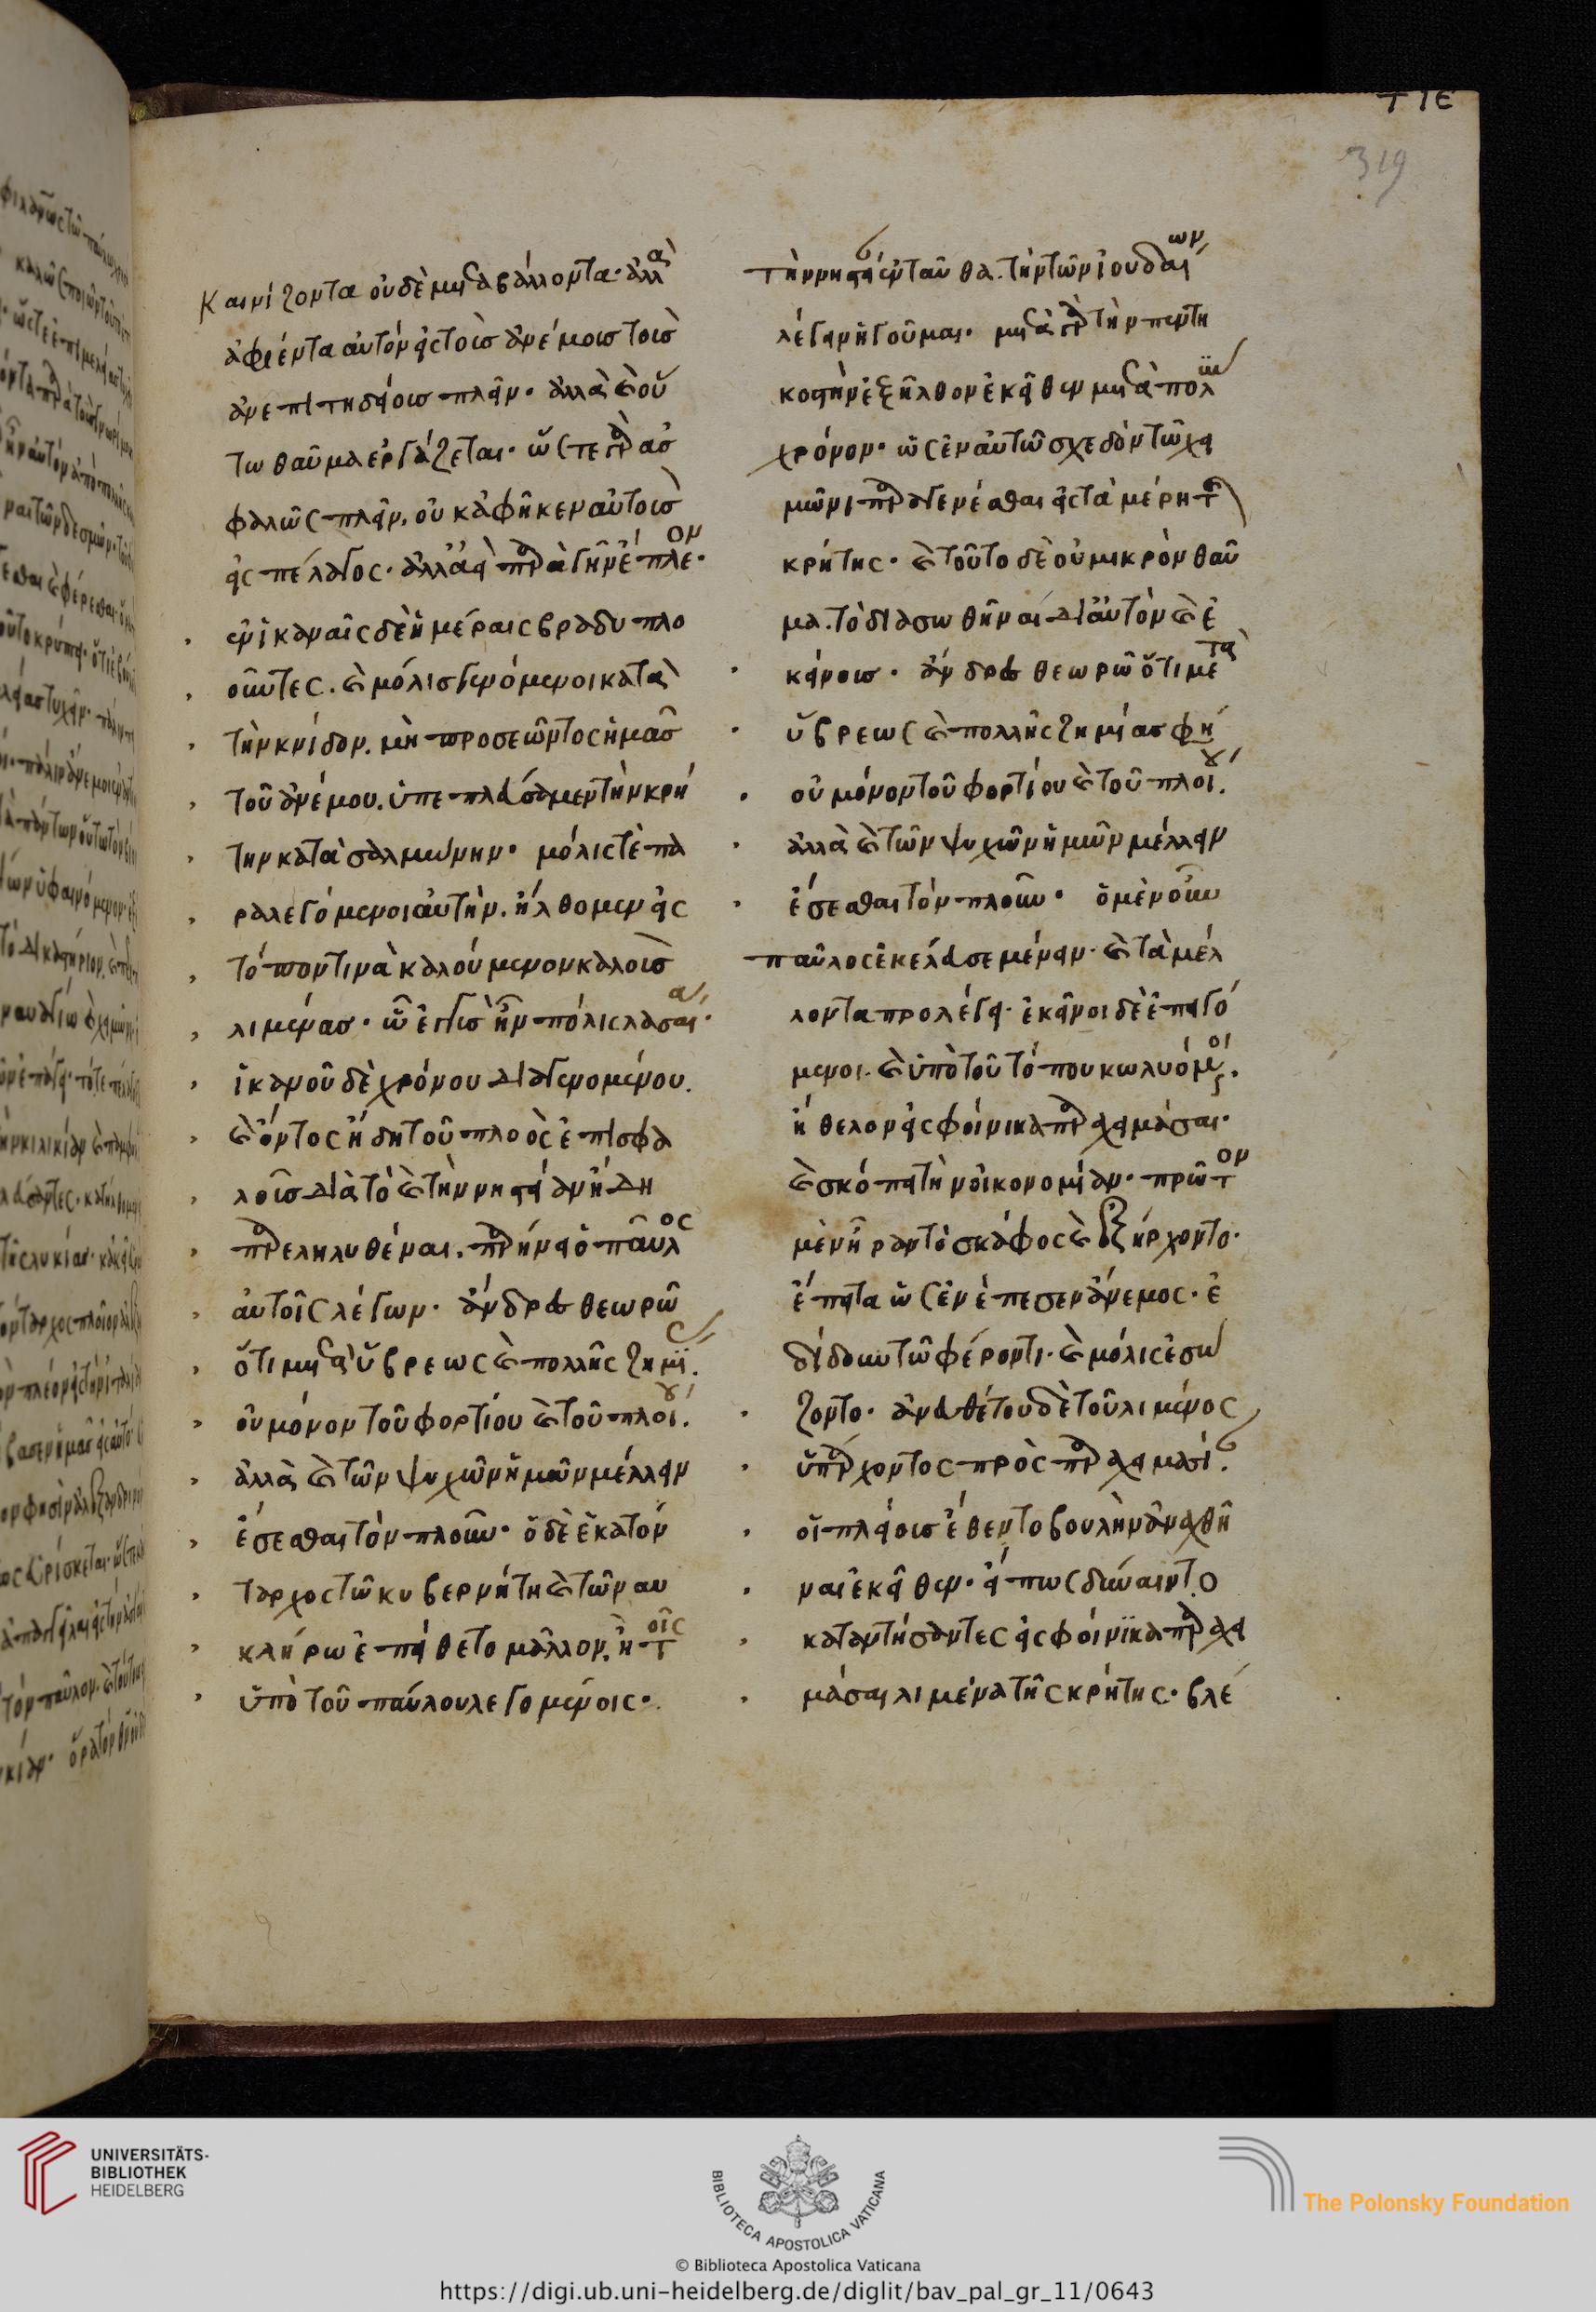 ΤΙΕ
319
Καινίζοντα οὐδὲ μεταβάλλοντα· ἀλλὰ
ἀφιέντα αὐτὸν εἰς τοῖς ἀνέμοις τοῖς
ἀνεπιτηδείοις πλεῖν· ἀλλὰ καὶ οὕ
τω θαῦμα ἐργάζεται· ὥστε γὰρ ἀσ
φαλῶς πλεῖν. οὐκ ἀφῆκεν αὐτοῖς
εἰς πέλαγος· ἀλλ' ἀεὶ παρὰ γῆν ἔπλεον·
ἐν ἱκαναῖς δὲ ἡμέραις βραδυπλο
οῦντες. καὶ μόλις γενόμενοι κατὰ
τὴν κνίδον. μὴ προσεῶντος ἡμᾶς
τοῦ ἀνέμου. ὑπεπλεύσαμεν τὴν κρή
την κατὰ σαλμώνην· μόλις τὲ πα
ραλεγόμενοι αὐτὴν. ἤλθομεν εἰς
τόπον τινὰ καλούμενον καλοὺς
λιμένας· ᾧ ἐγγὺς ἦν πόλις λασαία·
ἱκανοῦ δὲ χρόνου διαγενομένου.
καὶ ὄντος ἤδη τοῦ πλοὸς ἐπισφα
λοῦς διὰ τὸ καὶ τὴν νηστείαν ἤδη
παρεληλυθέναι. παρῄνει ὁ παῦλος
αὐτοῖς λέγων· ἄνδρες θεωρῶ
ὅτι μετὰ ὕβρεως καὶ πολλῆς ζημίας.
οὐ μόνον τοῦ φορτίου καὶ τοῦ πλοίου.
ἀλλὰ καὶ τῶν ψυχῶν ἡμῶν μέλλειν
ἔσεσθαι τὸν πλοῦν· ὁ δὲ ἑκατόν
ταρχος τῷ κυβερνήτῃ καὶ τῷ ναυ
κλήρῳ ἐπείθετο μᾶλλον. ἢ τοῖς
ὑπὸ τοῦ παύλου λεγομένοις·
τὴν νηστείαν ἐνταῦθα. τὴν τῶν ἰουδαίων
λέγειν ἡγοῦμαι· μετὰ γὰρ τὴν πεντη
κοστὴν ἐξῆλθον ἐκεῖθεν μετὰ πολὺν
χρόνον· ὡς ἐν αὐτῷ σχεδὸν τῷ χει
μῶνι παραγενέσθαι εἰς τὰ μέρη τῆς
κρήτης· καὶ τοῦτο δὲ οὐ μικρὸν θαῦ
μα. τὸ διασωθῆναι δι' αὐτὸν καὶ ἐ
κείνοις· ἄνδρες θεωρῶ ὅτι μετὰ
ὕβρεως καὶ πολλῆς ζημίας φη
οὐ μόνον τοῦ φορτίου καὶ τοῦ πλοίου.
ἀλλὰ καὶ τῶν ψυχῶν ἡμῶν μέλλειν
ἔσεσθαι τὸν πλοῦν· ὁ μὲν οὖν
παῦλος ἐκέλευσε μένειν· καὶ τὰ μέλ
λοντα προλέγει· ἐκεῖνοι δὲ ἐπειγό
μενοι. καὶ ὑπὸ τοῦ τόπου κωλυόμενοι.
ἤθελον εἰς φοίνικα παραχειμάσαι·
καὶ σκόπει τὴν οἰκονομίαν· πρῶτον
μὲν ἦραν τὸ σκάφος καὶ ἐξήρχοντο·
ἔπειτα ὡς ἐνέπεσεν ἄνεμος· ἐ
δίδουν τῷ φέροντι· καὶ μόλις ἐσώ
ζοντο· ἀνευθέτου δὲ τοῦ λιμένος
ὑπάρχοντος πρὸς παραχειμασίαν.
οἱ πλείους ἔθεντο βουλὴν ἀναχθῆ
ναι ἐκεῖθεν· εἴ πως δύναιντο
καταντήσαντες εἰς φοίνικα παραχει
μάσαι λιμένα τῆς κρήτης· βλέ
UNIVERSITÄTS-
BIBLIOTHEK
HEIDELBERG
BIBLIOTECA APOSTOLICA VATICANA
The Polonsky Foundation
© Biblioteca Apostolica Vaticana
https://digi.ub.uni-heidelberg.de/diglit/bav_pal_gr_11/0643